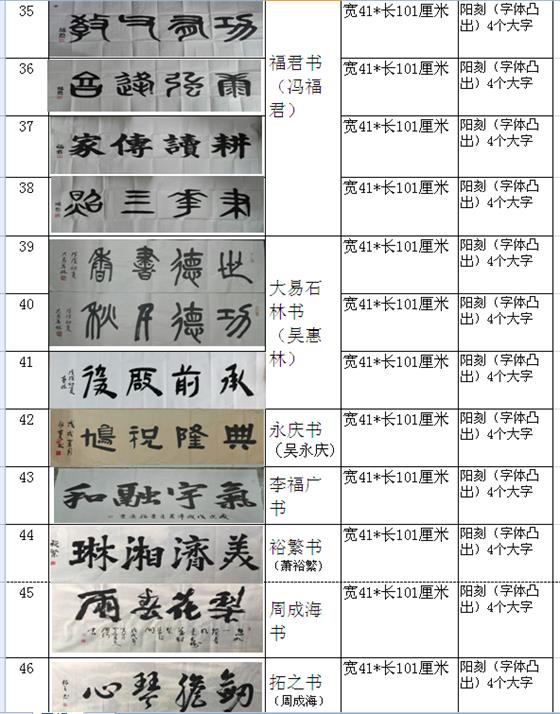 35
福君书
（冯福
君）
宽41*长101厘米
阳刻（字体凸
出）4个大字
36
宽41*长101厘米
阳刻（字体凸
出）4个大字
37
耕讀傳家
宽41*长101厘米
阳刻（字体凸
出）4个大字
38
宽41*长101厘米
阳刻（字体凸
出）4个大字
39
世德書香
大易石
林书
（吴惠
林）
宽41*长101厘米
阳刻（字体凸
出）4个大字
40
宽41*长101厘米
阳刻（字体凸
出）4个大字
41
宽41*长101厘米
阳刻（字体凸
出）4个大字
42
永庆书
（吴永庆）
宽41*长101厘米
阳刻（字体凸
出）4个大字
43
氣宇融和
李福广
书
宽41*长101厘米
阳刻（字体凸
出）4个大字
44
美濟湘琳
裕繁书
（萧裕繁）
宽41*长101厘米
阳刻（字体凸
出）4个大字
45
梨花春雨
周成海
书
宽41*长101厘米
阳刻（字体凸
出）4个大字
46
劍膽琴心
拓之书
（周成海）
宽41*长101厘米
阳刻（字体凸
出）4个大字